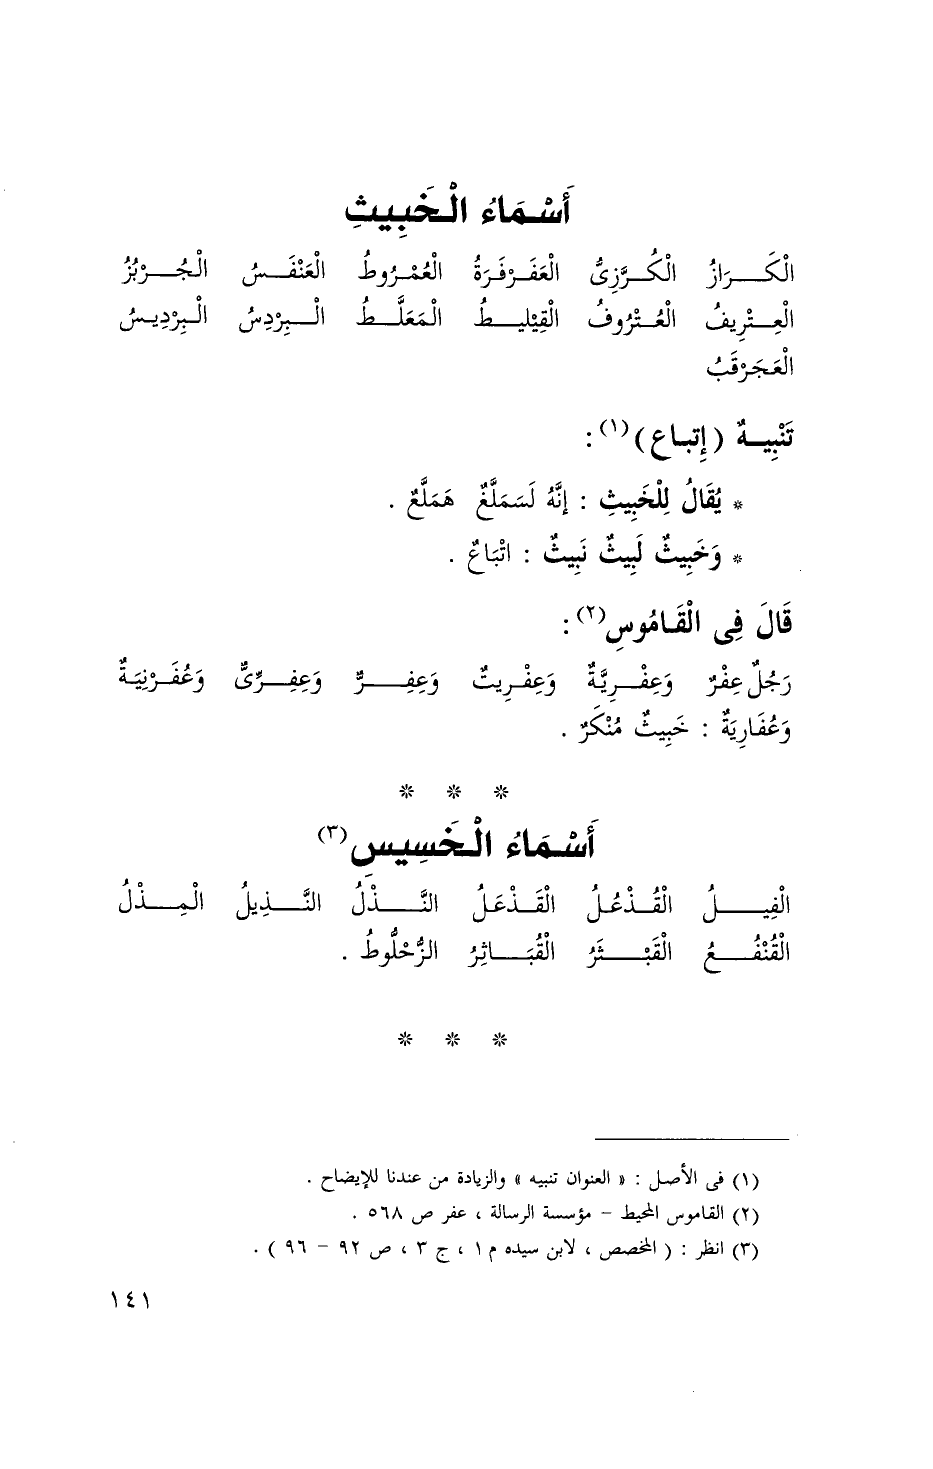 أَسْمَاءُ الْخَبِيثِ
الْكَرَازُ الْكُرَّزِىُّ الْعَفَرْفَرَةُ الْعُمْرُوطُ الْعَنْفَسُ الْجُرْبُزُ
الْعِتْرِيفُ الْعُتْرُوفُ الْقِيْلِيطُ الْمَعَلَّطُ الْبِرْدِسُ الْبِرْدِيسُ
الْعَجَرْقَبُ
تَنْبِيهٌ (إِتباع)(١) :
* يُقَالُ لِلْخَبِيثِ : إِنَّهُ لَسَمَلَّعٌ هَمَلَّعٌ .
* وَخَبِيثٌ لَبِيثٌ نَبِيثٌ : اتْبَاعٌ .
قَالَ فِى الْقَامُوسِ(٢) :
رَجُلٌ عِفْرٌ وَعِفْرِيَّةٌ وَعِفْرِيتٌ وَعِفِرٌّ وَعِفِرِّىٌّ وَعُفَرْنِيَةٌ
وَعُفَارِيَةٌ : خَبِيثٌ مُنْكَرٌ .
* * *
أَسْمَاءُ الْخَسِيسِ(٣)
الْفِيلُ الْقُذْعُلُ الْقَذْعَلُ النَّذْلُ النَّذِيلُ الْمِذْلُ
الْقُنْفُعُ الْقَبْثَرُ الْقُبَاثِرُ الزُّحْلُوطُ .
* * *
(١) فى الأصل : « العنوان تنبيه » والزيادة من عندنا للإيضاح .
(٢) القاموس المحيط – مؤسسة الرسالة ، عفر ص ٥٦٨ .
(٣) انظر : ( المخصص ، لابن سيده م ١ ، ج ٣ ، ص ٩٢ – ٩٦ ) .
١٤١